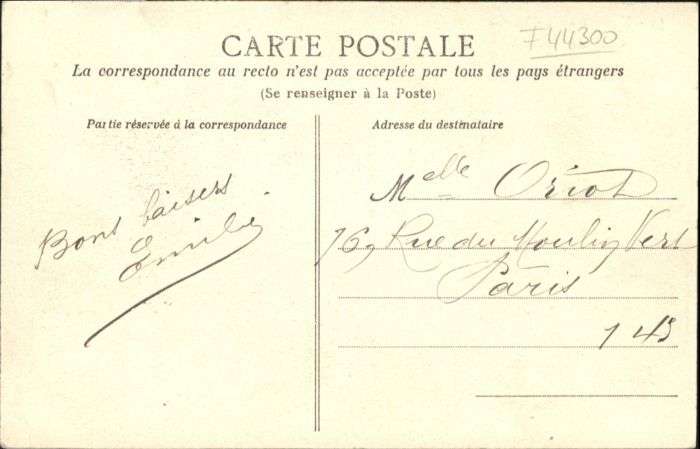 F44300
CARTE POSTALE
La correspondance au recto n'est pas acceptée par tous les pays étrangers
(Se renseigner à la Poste)
Partie réservée à la correspondance
Bons baisers
Emilie
Adresse du destinataire
Melle Oriot
76, Rue du Moulin Vert
Paris